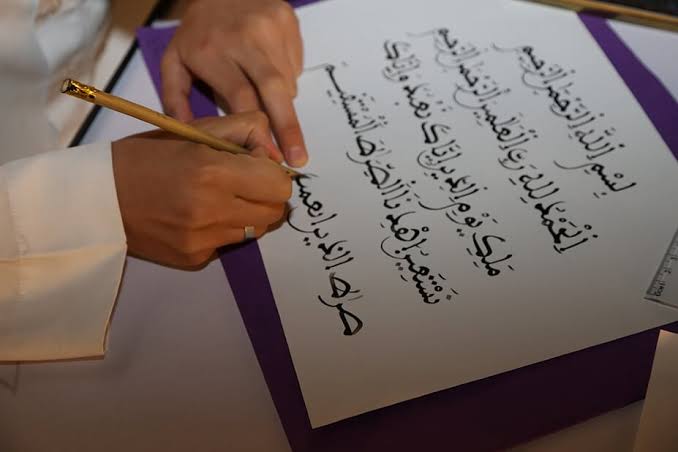 بِسْمِ اللَّهِ الرَّحْمَنِ الرَّحِيمِ
اَلْحَمْدُ لِلَّهِ رَبِّ الْعَلَمِينَ الرَّحْمَنِ الرَّحِيمِ
مَلِكِ يَوْمِ الدِّينِ إِيَّاكَ نَعْبُدُ وَإِيَّاكَ
نَسْتَعِينُ اهْدِنَا الصِّرَاطَ الْمُسْتَقِيمَ
صراط الذين انعمت